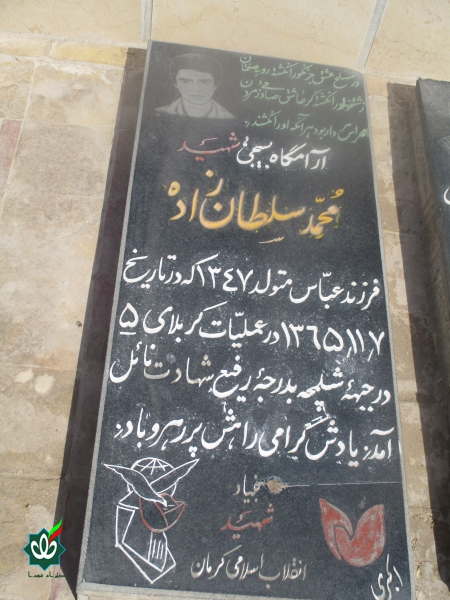 در مسلخ عشق جز نکو را نکشند روبه صفتان
زشتخو را نکشند گر عاشق صادقی ز مردن
مهراس مردار بود هر آنکه او را نکشند
آرامگاه بسیجی شهید
محمد سلطان زاده
فرزند عباس متولد ۱۳۴۷ که در تاریخ
۱۳۶۵،۱۱،۷ در عملیات کربلای ۵
در جبههٔ شلمچه بدرجهٔ رفیع شهادت نائل
آمد یادش گرامی راهش پر رهرو باد
بنیاد
شهید
انقلاب اسلامی کرمان